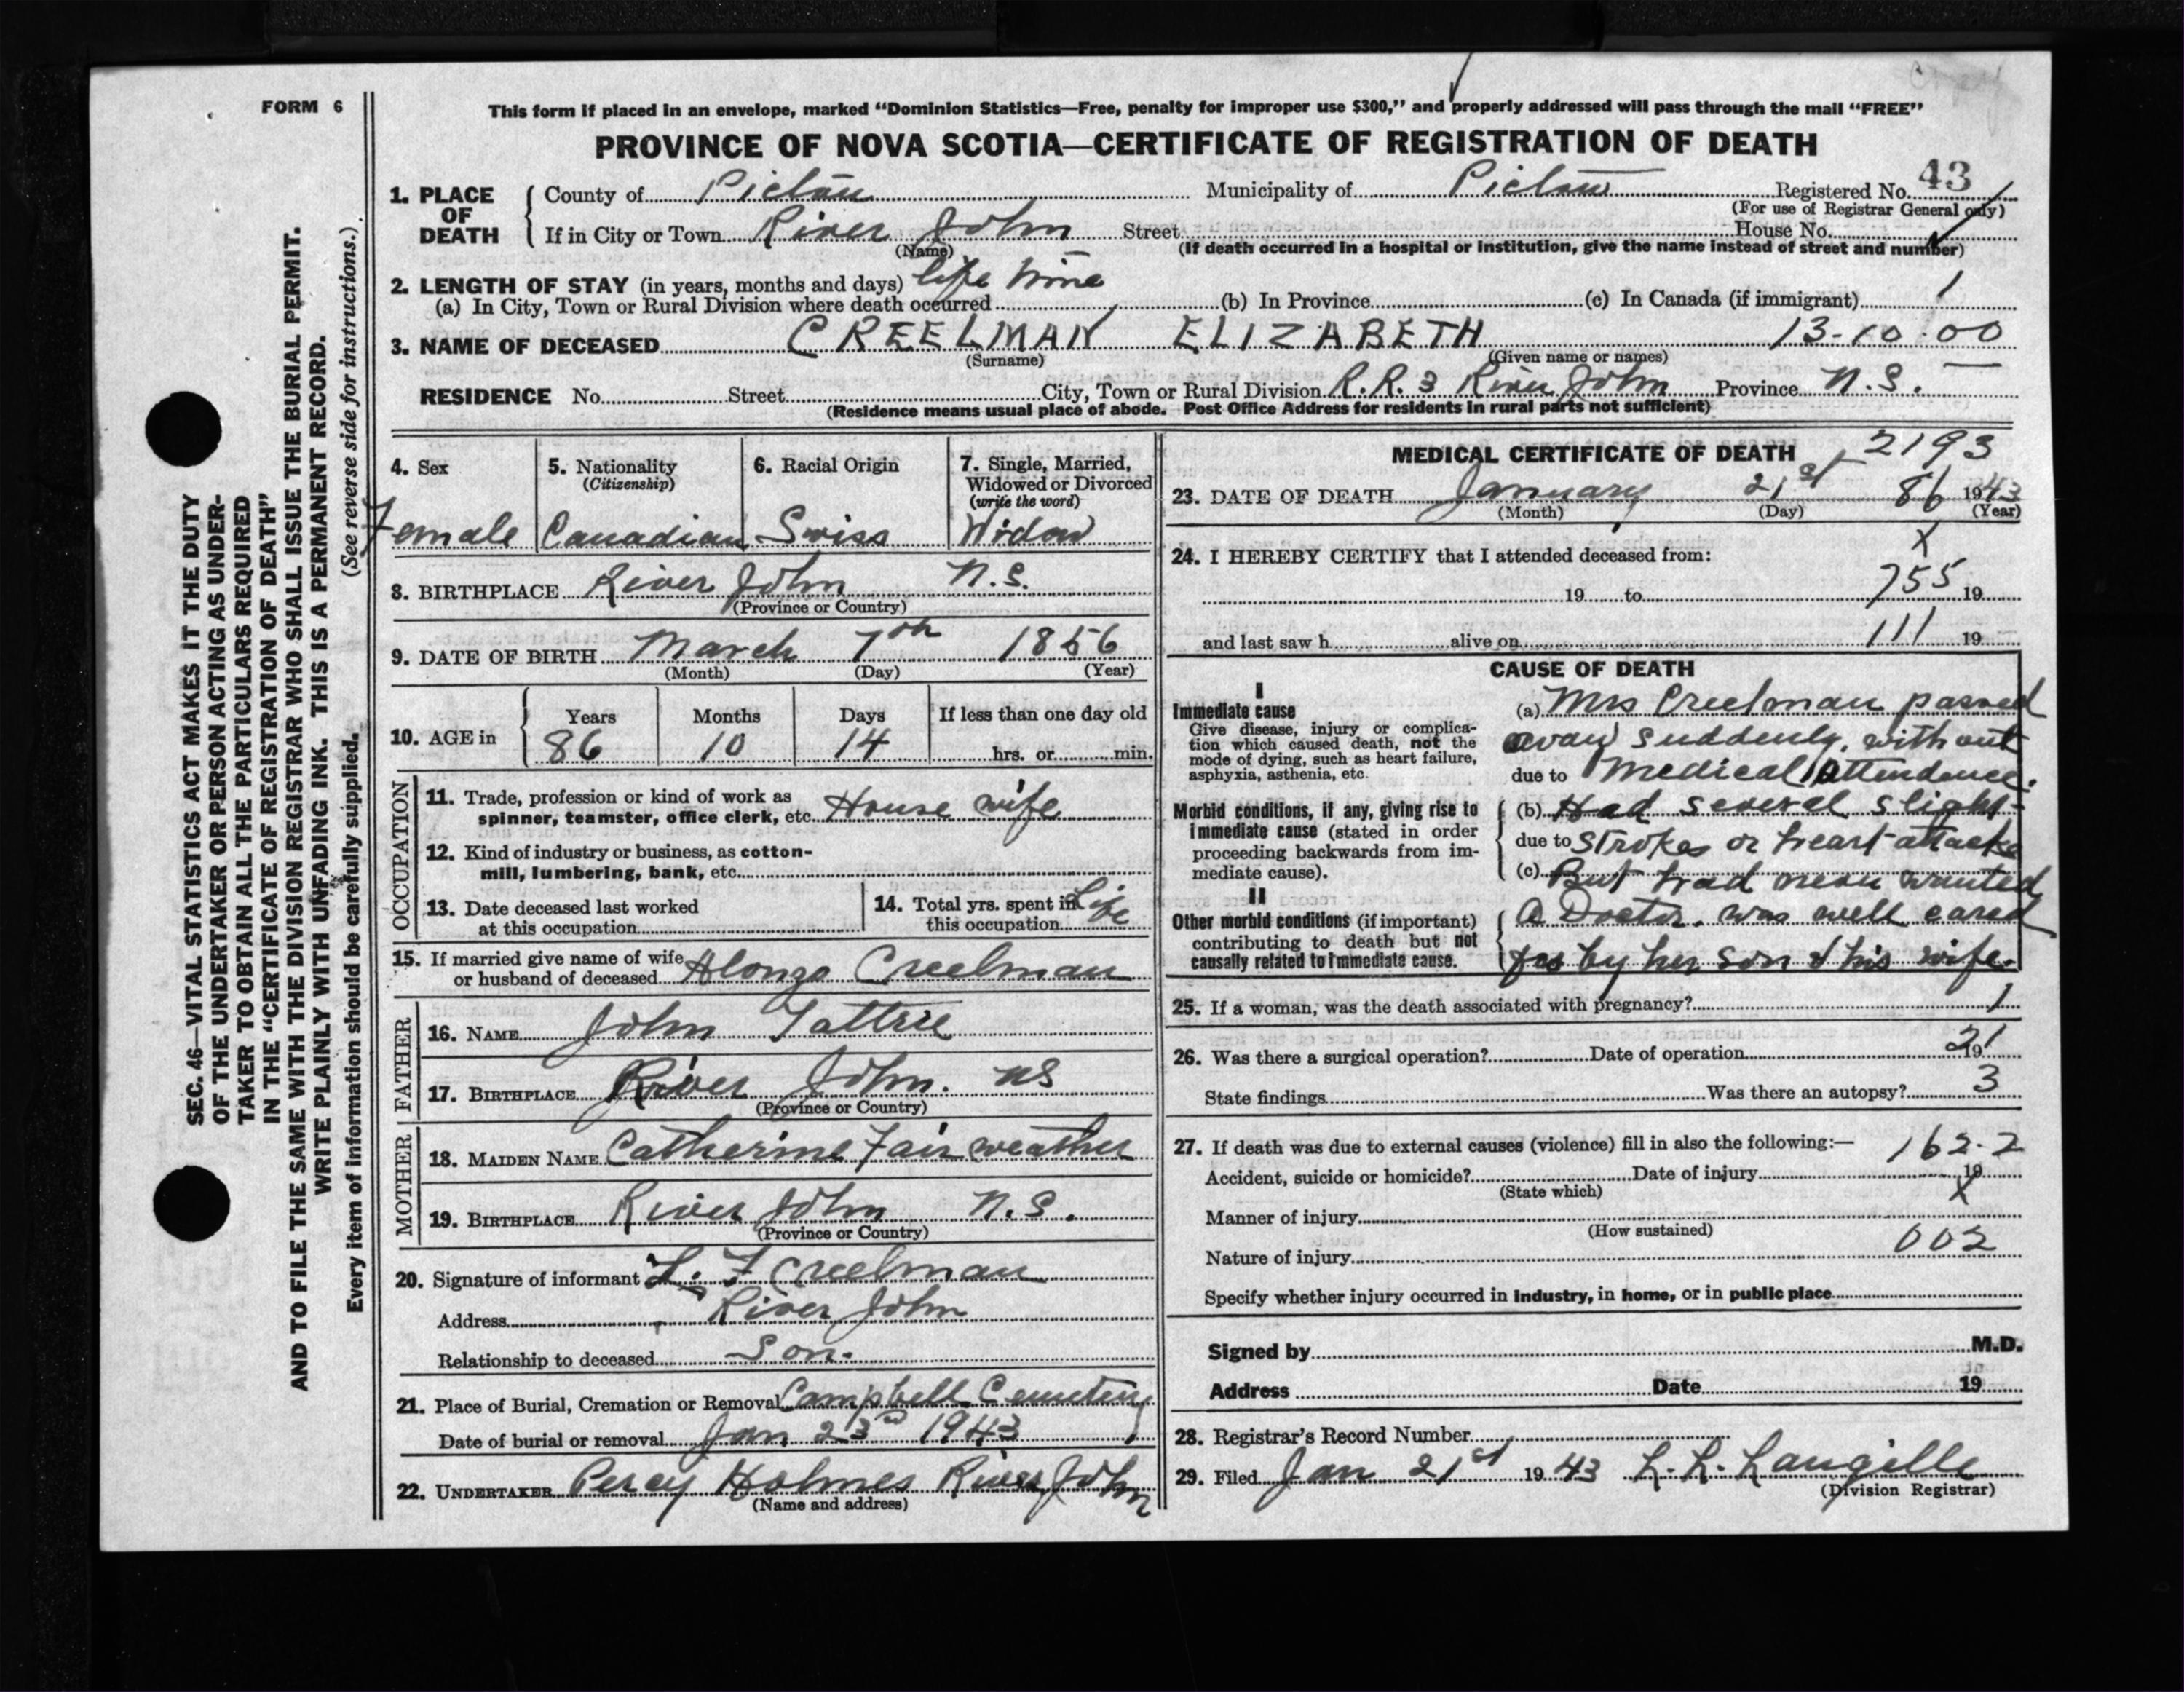 FORM 6
This form if placed in an envelope, marked “Dominion Statistics—Free, penalty for improper use $300,” and properly addressed will pass through the mail “FREE”
PROVINCE OF NOVA SCOTIA—CERTIFICATE OF REGISTRATION OF DEATH
1. PLACE OF DEATH County of Pictou Municipality of Pictou Registered No. 43
(For use of Registrar General only)
If in City or Town River John Street House No.
(Name) (If death occurred in a hospital or institution, give the name instead of street and number)
2. LENGTH OF STAY (in years, months and days) life time
(a) In City, Town or Rural Division where death occurred (b) In Province (c) In Canada (if immigrant) 1
3. NAME OF DECEASED CREELMAN ELIZABETH 13-10-00
(Surname) (Given name or names)
RESIDENCE No. Street City, Town or Rural Division R.R. 3 River John Province N.S.
(Residence means usual place of abode. Post Office Address for residents in rural parts not sufficient)
4. Sex 5. Nationality 6. Racial Origin 7. Single, Married,
(Citizenship) Widowed or Divorced
(write the word)
Female Canadian Swiss Widow
8. BIRTHPLACE River John N.S.
(Province or Country)
9. DATE OF BIRTH March 7th 1856
(Month) (Day) (Year)
10. AGE in Years Months Days If less than one day old
86 10 14 hrs. or min.
OCCUPATION
11. Trade, profession or kind of work as
spinner, teamster, office clerk, etc. House wife
12. Kind of industry or business, as cotton-
mill, lumbering, bank, etc.
13. Date deceased last worked
at this occupation
14. Total yrs. spent in
this occupation Life
15. If married give name of wife
or husband of deceased Alonzo Creelman
FATHER
16. NAME John Tattrie
17. BIRTHPLACE River John. NS
(Province or Country)
MOTHER
18. MAIDEN NAME Catherine Fairweather
19. BIRTHPLACE River John N.S.
(Province or Country)
20. Signature of informant L. F Creelman
Address River John
Relationship to deceased Son.
21. Place of Burial, Cremation or Removal Campbell Cemetery
Date of burial or removal Jan 23rd 1943
22. UNDERTAKER Percy Holmes River John
(Name and address)
MEDICAL CERTIFICATE OF DEATH 2193
23. DATE OF DEATH January 21st 86 1943
(Month) (Day) (Year)
X
24. I HEREBY CERTIFY that I attended deceased from:
19 to 755 19
and last saw h alive on 111 19
CAUSE OF DEATH
I
Immediate cause
Give disease, injury or complica-
tion which caused death, not the
mode of dying, such as heart failure,
asphyxia, asthenia, etc.
(a) Mrs Creelman passed
away suddenly, without
due to Medical Attendance.
Morbid conditions, if any, giving rise to
immediate cause (stated in order
proceeding backwards from im-
mediate cause).
(b) Had several slight
due to strokes or heart attacks
(c) But had never wanted
II
Other morbid conditions (if important)
contributing to death but not
causally related to immediate cause.
A Doctor. was well cared
for by her son & his wife.
25. If a woman, was the death associated with pregnancy? 1
26. Was there a surgical operation? Date of operation 19 21
State findings Was there an autopsy? 3
27. If death was due to external causes (violence) fill in also the following:— 162-2
Accident, suicide or homicide? Date of injury 19
(State which) X
Manner of injury
(How sustained)
Nature of injury 002
Specify whether injury occurred in industry, in home, or in public place
Signed by M.D.
Address Date 19
28. Registrar's Record Number
29. Filed Jan 21st 1943 L. R. Langille
(Division Registrar)
SEC. 46—VITAL STATISTICS ACT MAKES IT THE DUTY
OF THE UNDERTAKER OR PERSON ACTING AS UNDER-
TAKER TO OBTAIN ALL THE PARTICULARS REQUIRED
IN THE “CERTIFICATE OF REGISTRATION OF DEATH”
AND TO FILE THE SAME WITH THE DIVISION REGISTRAR WHO SHALL ISSUE THE BURIAL PERMIT.
WRITE PLAINLY WITH UNFADING INK. THIS IS A PERMANENT RECORD.
Every item of information should be carefully supplied. (See reverse side for instructions.)